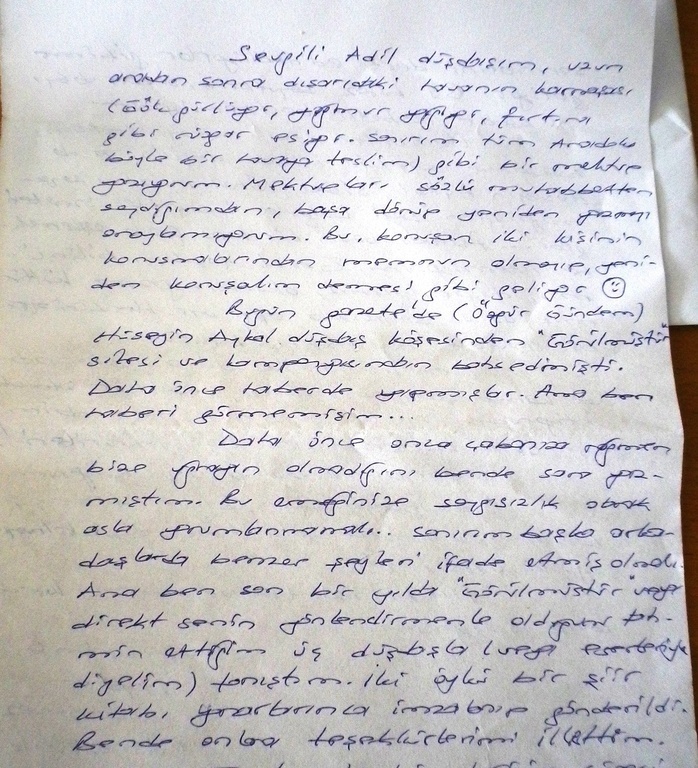 Sevgili Adil düşdaşım, uzun
aradan sonra dışarıdaki havanın karmaşası
(Gök gürlüyor, yağmur yağıyor, fırtına
gibi rüzgar esiyor. sanırım tüm Anadolu
böyle bir havaya teslim) gibi bir mektup
yazıyorum. Mektupları sözlü muhabbetten
saydığımdan, başa dönüp yeniden yazmayı
onaylamıyorum. Bu, konuşan iki kişinin
konuşmalarından memnun olmayıp, yeni-
den konuşalım demesi gibi geliyor ☺
Bugün gazete'de (Özgür Gündem)
Hüseyin Aykol düşdaş köşesinden "Görülmüştür"
sitesi ve kampanyasından bahsedmişti.
Daha önce haberde yapmışlar. Ama ben
haberi görmemişim...
Daha önce onca çabanıza rağmen
bize yayın olmadığını bende sana yaz-
mıştım. Bu emeğinize saygısızlık olarak
asla yorumlanmamalı... sanırım başka arka-
daşlarda benzer şeyleri ifade etmiş olmalı.
Ama ben son bir yılda "Görülmüştür" veya
direkt senin yönlendirmenle olduğunu tah-
min ettiğim üç düşdaşla (veya eserleriyle
diyelim) tanıştım. İki öykü bir şiir
kitabı, yazarlarınca imzalanıp gönderildi.
Bende onlara teşekkürlerimi ilettim.